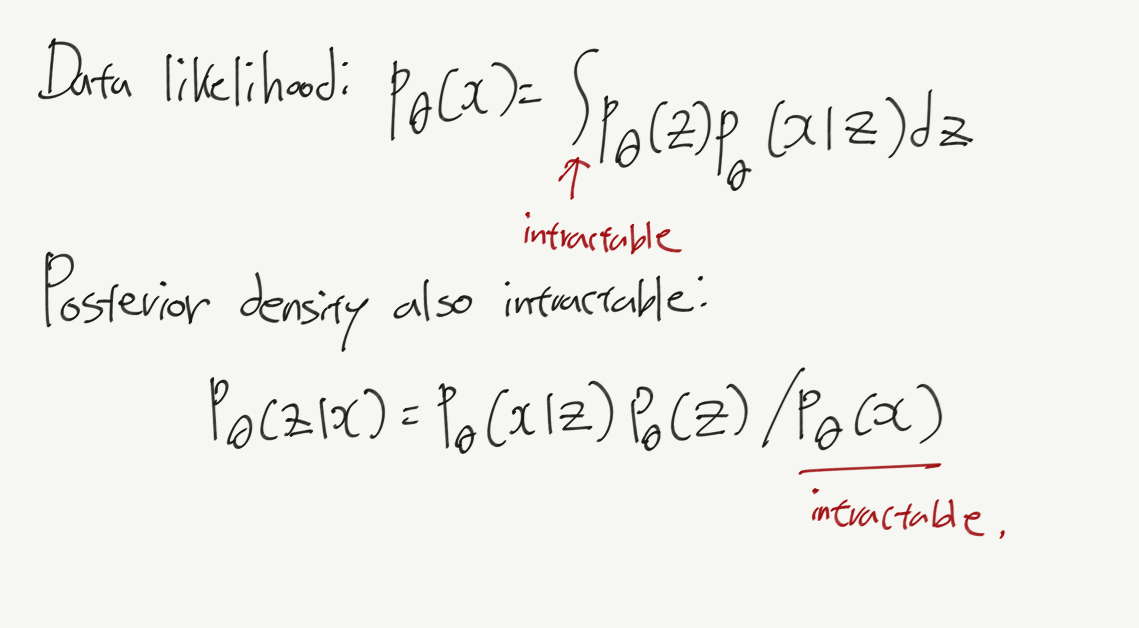 Data likelihood: pθ(x) = ∫pθ(z)pθ(x|z)dz
↑
intractable
Posterior density also intractable:
Pθ(z|x) = Pθ(x|z) Pθ(z) / Pθ(x)
intractable.